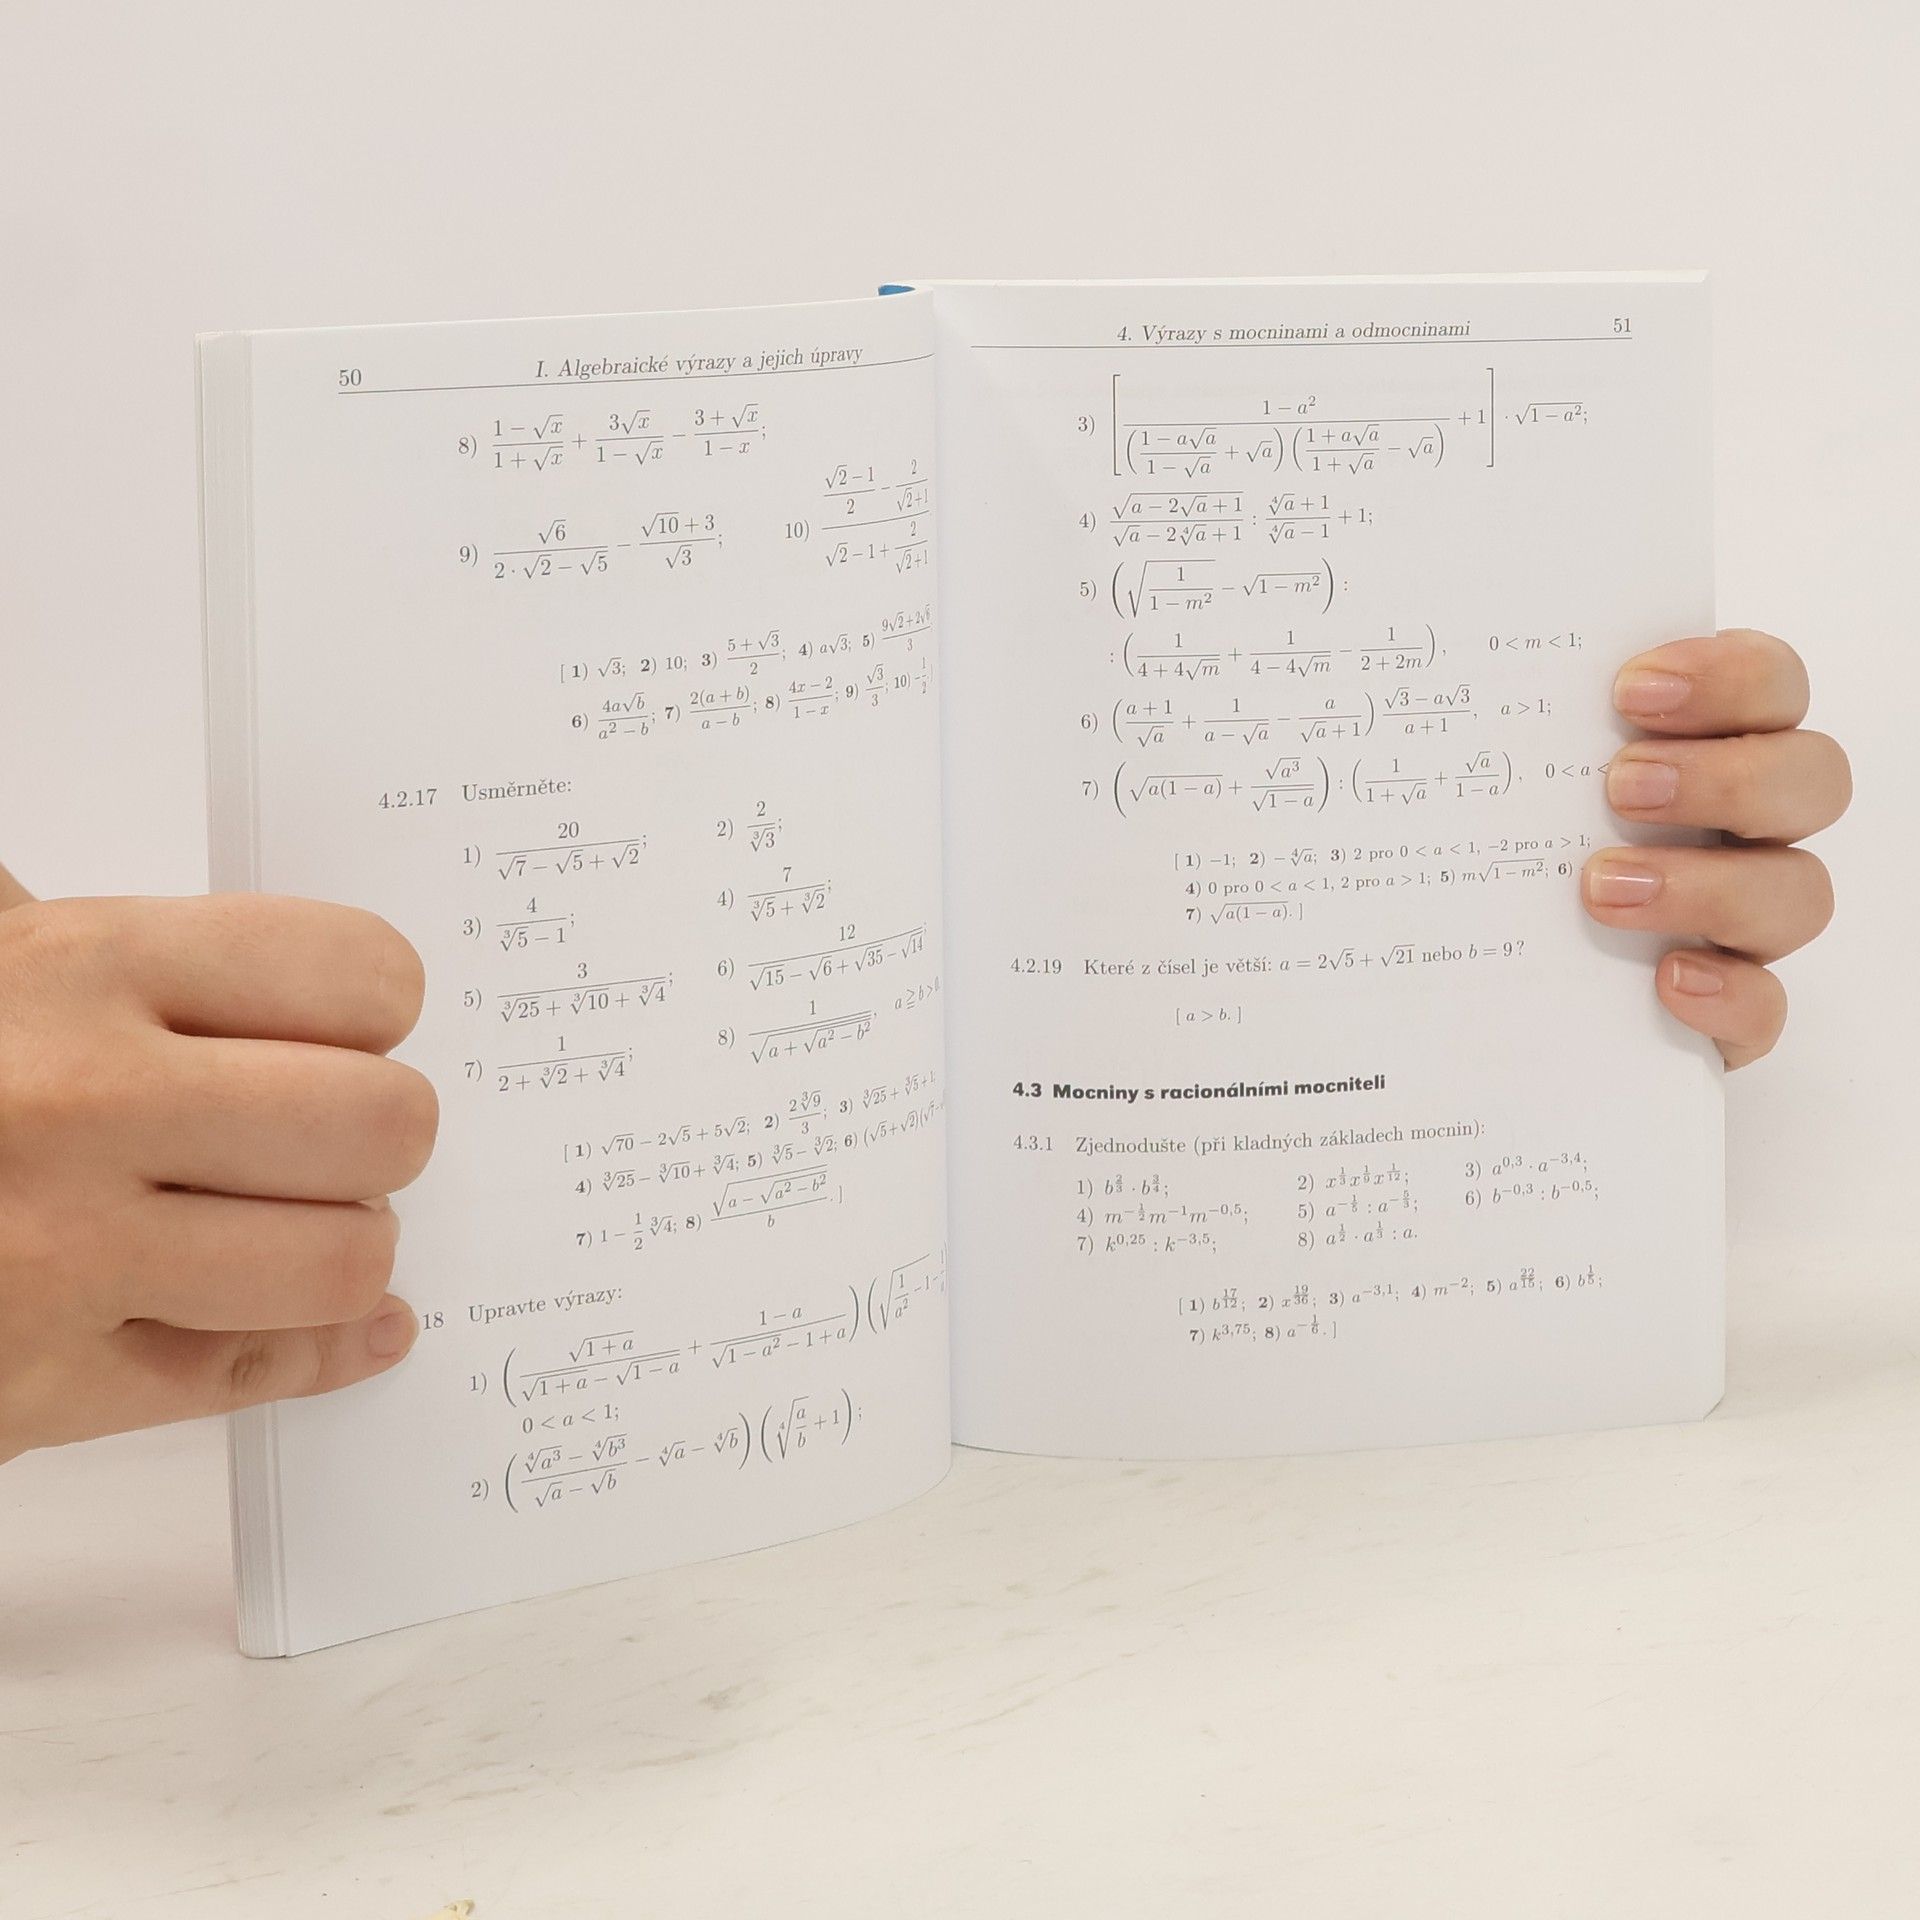 50 I. Algebraické výrazy a jejich úpravy
8) \frac{1-\sqrt{x}}{1+\sqrt{x}} + \frac{3\sqrt{x}}{1-\sqrt{x}} - \frac{3+\sqrt{x}}{1-x};
9) \frac{\sqrt{6}}{2\cdot\sqrt{2}-\sqrt{5}} - \frac{\sqrt{10}+3}{\sqrt{3}}; 10) \frac{\frac{\sqrt{2}-1}{2}-\frac{2}{\sqrt{2}+1}}{\sqrt{2}-1+\frac{2}{\sqrt{2}+1}}
[ 1) \sqrt{3}; 2) 10; 3) \frac{5+\sqrt{3}}{2}; 4) a\sqrt{3}; 5) \frac{9\sqrt{2}+2\sqrt{6}}{3}
6) \frac{4a\sqrt{b}}{a^2-b}; 7) \frac{2(a+b)}{a-b}; 8) \frac{4x-2}{1-x}; 9) \frac{\sqrt{3}}{3}; 10) -\frac{1}{2}.]
4.2.17 Usměrněte:
1) \frac{20}{\sqrt{7}-\sqrt{5}+\sqrt{2}}; 2) \frac{2}{\sqrt[3]{3}};
3) \frac{4}{\sqrt[3]{5}-1}; 4) \frac{7}{\sqrt[3]{5}+\sqrt[3]{2}};
5) \frac{3}{\sqrt[3]{25}+\sqrt[3]{10}+\sqrt[3]{4}}; 6) \frac{12}{\sqrt{15}-\sqrt{6}+\sqrt{35}-\sqrt{14}};
7) \frac{1}{2+\sqrt[3]{2}+\sqrt[3]{4}}; 8) \frac{1}{\sqrt{a+\sqrt{a^2-b^2}}}, a ≧ b > 0.
[ 1) \sqrt{70}-2\sqrt{5}+5\sqrt{2}; 2) \frac{2\sqrt[3]{9}}{3}; 3) \sqrt[3]{25}+\sqrt[3]{5}+1;
4) \sqrt[3]{25}-\sqrt[3]{10}+\sqrt[3]{4}; 5) \sqrt[3]{5}-\sqrt[3]{2}; 6) (\sqrt{5}+\sqrt{2})(\sqrt{7}-
7) 1-\frac{1}{2}\sqrt[3]{4}; 8) \frac{\sqrt{a-\sqrt{a^2-b^2}}}{b}. ]
18 Upravte výrazy:
1) \left(\frac{\sqrt{1+a}}{\sqrt{1+a}-\sqrt{1-a}}+\frac{1-a}{\sqrt{1-a^2}-1+a}\right)\left(\sqrt{\frac{1}{a^2}-1}-
0 < a < 1;
2) \left(\frac{\sqrt[4]{a^3}-\sqrt[4]{b^3}}{\sqrt{a}-\sqrt{b}}-\sqrt[4]{a}-\sqrt[4]{b}\right)\left(\sqrt[4]{\frac{a}{b}}+1\right);
4. Výrazy s mocninami a odmocninami 51
3) \left[\frac{1-a^2}{\left(\frac{1-a\sqrt{a}}{1-\sqrt{a}}+\sqrt{a}\right)\left(\frac{1+a\sqrt{a}}{1+\sqrt{a}}-\sqrt{a}\right)}+1\right]\cdot\sqrt{1-a^2};
4) \frac{\sqrt{a-2\sqrt{a}+1}}{\sqrt{a}-2\sqrt[4]{a}+1} : \frac{\sqrt[4]{a}+1}{\sqrt[4]{a}-1}+1;
5) \left(\sqrt{\frac{1}{1-m^2}}-\sqrt{1-m^2}\right) :
: \left(\frac{1}{4+4\sqrt{m}}+\frac{1}{4-4\sqrt{m}}-\frac{1}{2+2m}\right), 0 < m < 1;
6) \left(\frac{a+1}{\sqrt{a}}+\frac{1}{a-\sqrt{a}}-\frac{a}{\sqrt{a}+1}\right)\frac{\sqrt{3}-a\sqrt{3}}{a+1}, a > 1;
7) \left(\sqrt{a(1-a)}+\frac{\sqrt{a^3}}{\sqrt{1-a}}\right) : \left(\frac{1}{1+\sqrt{a}}+\frac{\sqrt{a}}{1-a}\right), 0 < a <
[ 1) −1; 2) −\sqrt[4]{a}; 3) 2 pro 0 < a < 1, −2 pro a > 1;
4) 0 pro 0 < a < 1, 2 pro a > 1; 5) m\sqrt{1-m^2}; 6)
7) \sqrt{a(1-a)}. ]
4.2.19 Které z čísel je větší: a = 2\sqrt{5}+\sqrt{21} nebo b = 9?
[ a > b. ]
4.3 Mocniny s racionálními mocniteli
4.3.1 Zjednodušte (při kladných základech mocnin):
1) b^{\frac{2}{3}} \cdot b^{\frac{3}{4}}; 2) x^{\frac{1}{3}}x^{\frac{1}{9}}x^{\frac{1}{12}}; 3) a^{0,3} \cdot a^{-3,4};
4) m^{-\frac{1}{2}}m^{-1}m^{-0,5}; 5) a^{-\frac{1}{5}} : a^{-\frac{5}{3}}; 6) b^{-0,3} : b^{-0,5};
7) k^{0,25} : k^{-3,5}; 8) a^{\frac{1}{2}} \cdot a^{\frac{1}{3}} : a.
[ 1) b^{\frac{17}{12}}; 2) x^{\frac{19}{36}}; 3) a^{-3,1}; 4) m^{-2}; 5) a^{\frac{22}{15}}; 6) b^{\frac{1}{5}};
7) k^{3,75}; 8) a^{-\frac{1}{6}}. ]